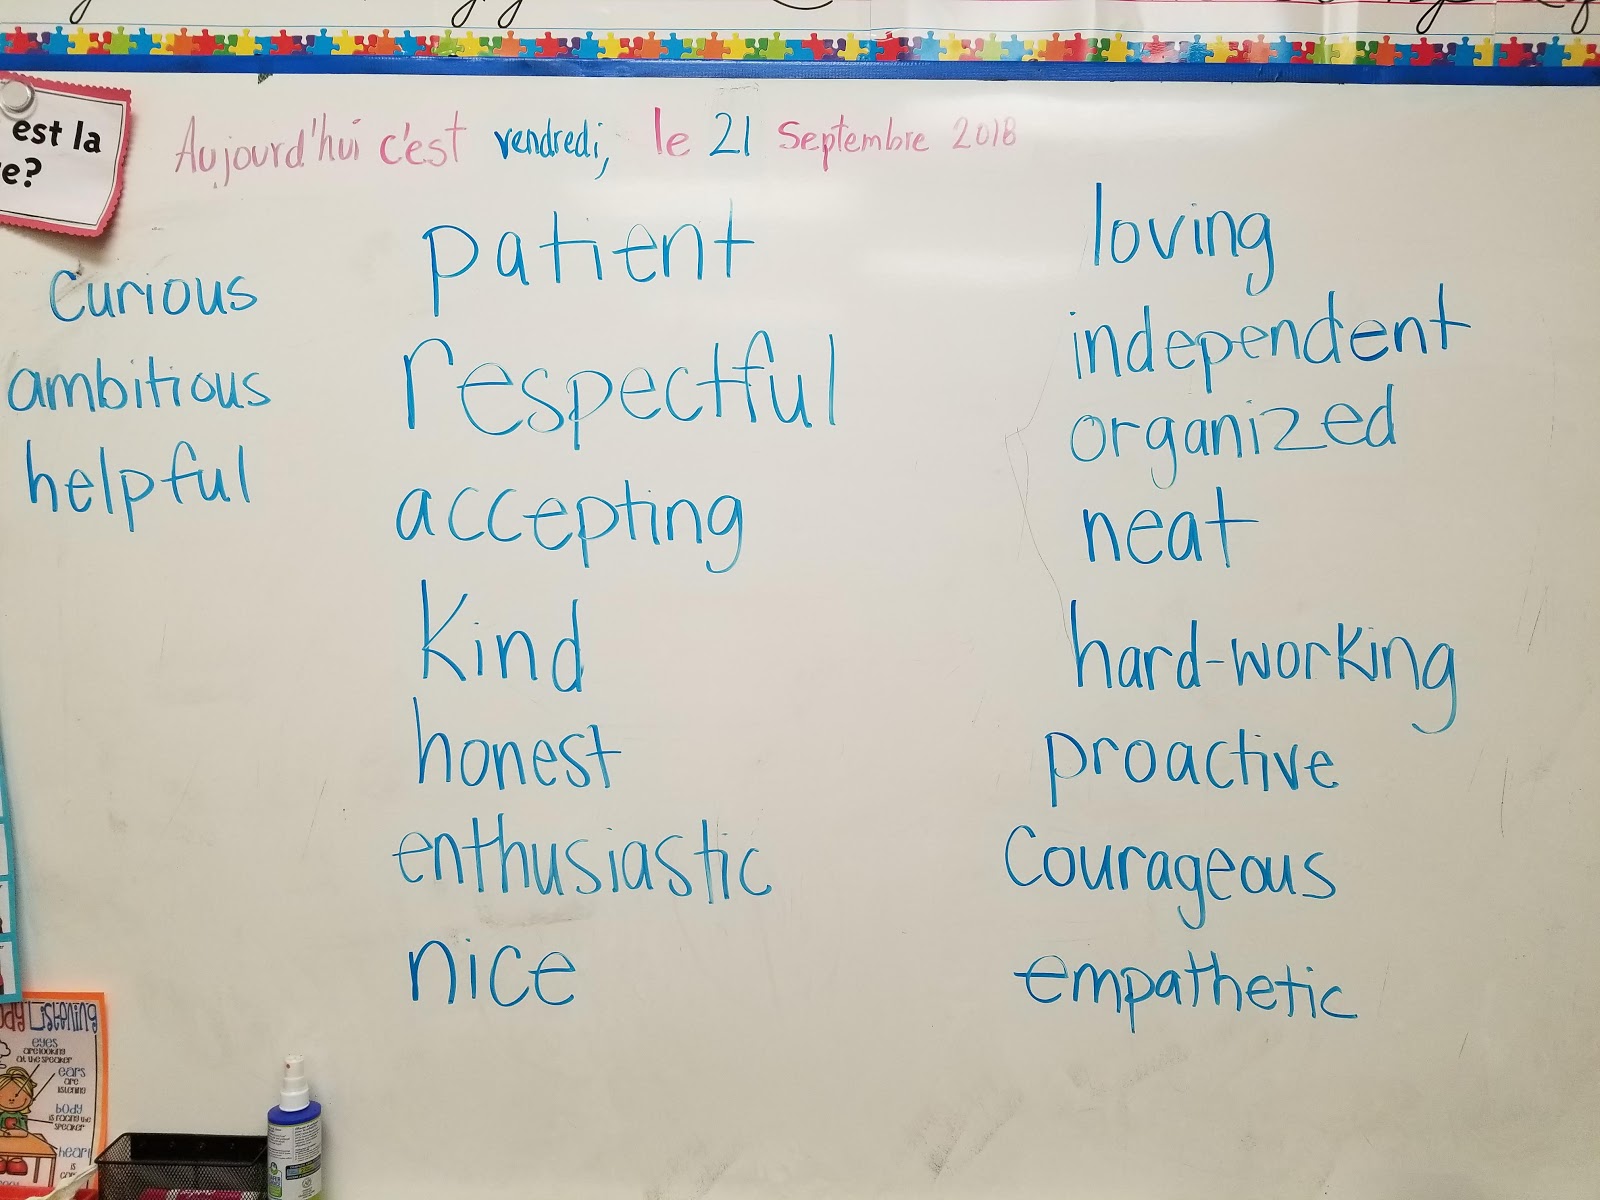 est la
e?
Aujourd'hui c'est vendredi, le 21 Septembre 2018
curious
ambitious
helpful
patient
respectful
accepting
kind
honest
enthusiastic
nice
loving
independent
organized
neat
hard-working
proactive
Courageous
empathetic
Listening
eyes
are looking
at the speaker
ears
are
listening
body
is facing the
speaker
heart
is